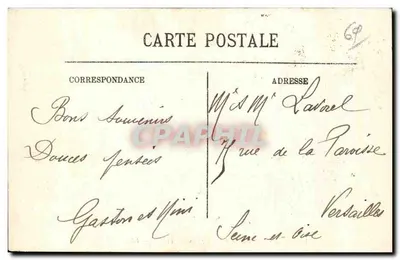 69
CARTE POSTALE
CORRESPONDANCE
ADRESSE
Bons souvenirs
Douces pensées
Gaston et Mimi
Mr & Me Lavorel
rue de la Paroisse
Versailles
Seine-et-Oise
CPAPHIL